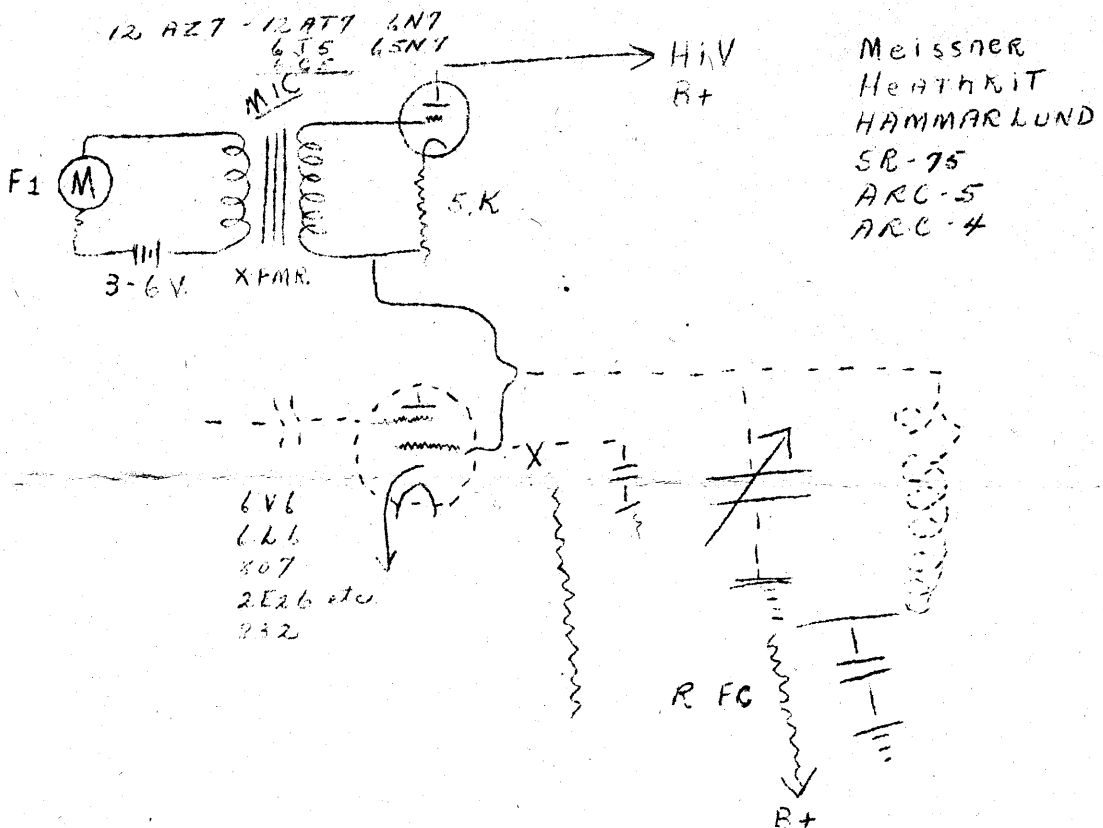 12 AZ7 - 12 AT7 6N7
6J5 6SN7
6C5
MIC
Hi,V
B+
Meissner
HeATHKiT
HAMMARLUND
SR-75
ARC-5
ARC-4
F1
M
5.K
3-6 V.
XFMR.
X
6V6
6L6
807
2E26 etc
832
R FC
B+